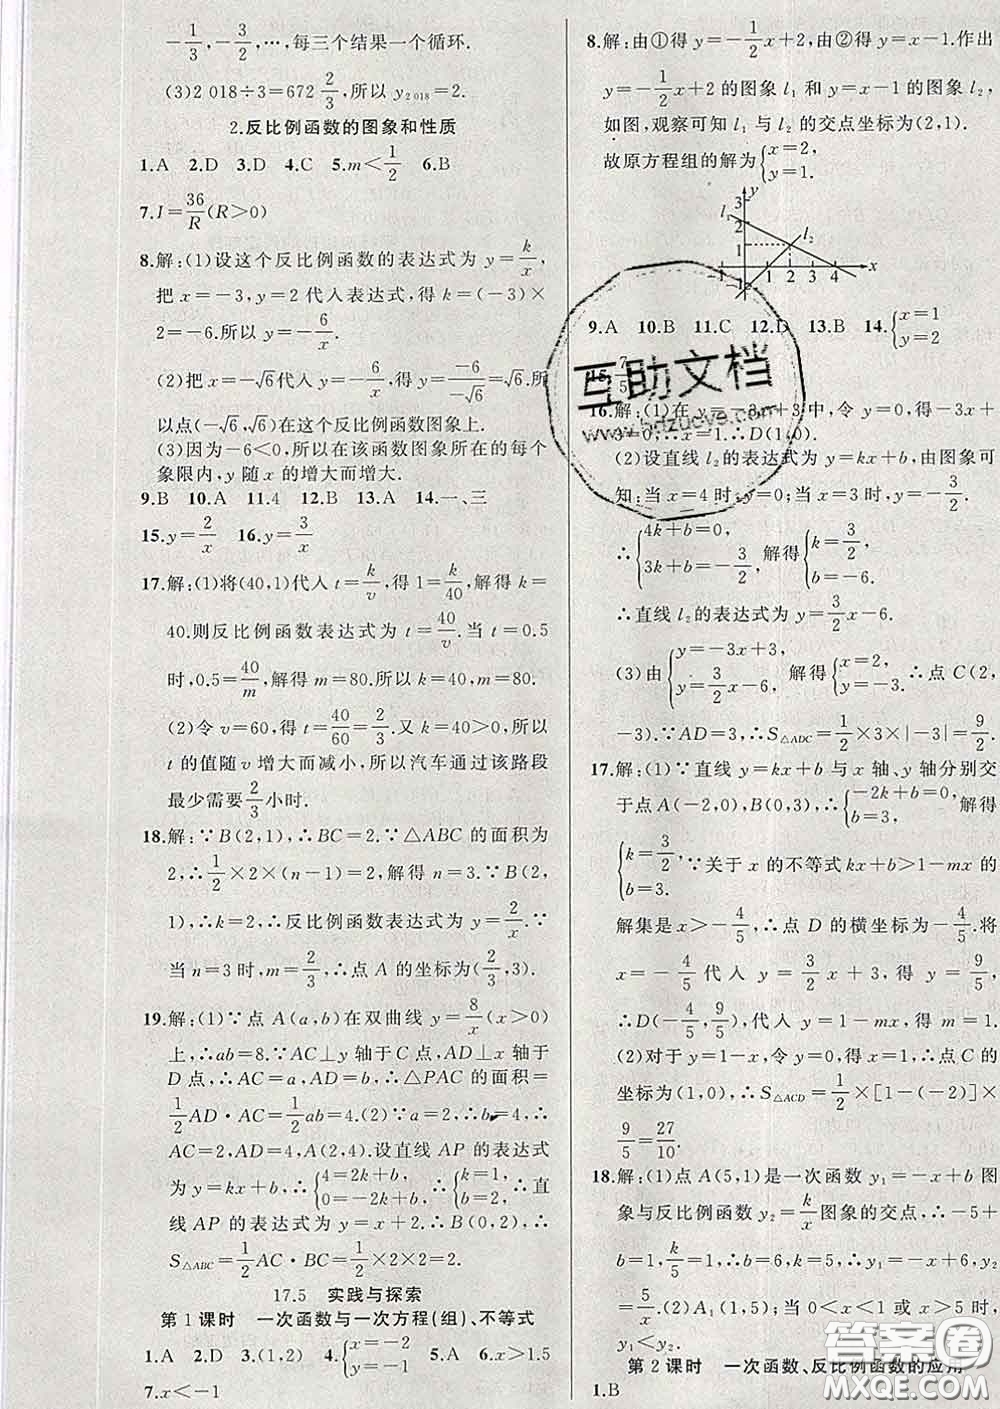 -1/3,-3/2,…,每三个结果一个循环.
(3)2 018÷3=672 2/3,所以 y₂ ₀₁₈=2.
2.反比例函数的图象和性质
1.A 2.D 3.D 4.C 5.m<1/2 6.B
7.I=36/R(R>0)
8.解:(1)设这个反比例函数的表达式为 y=k/x,
把 x=-3,y=2 代入表达式,得 k=(-3)×
2=-6.所以 y=-6/x.
(2)把 x=-√6代入 y=-6/x,得 y=-6/-√6=√6.所
以点(-√6,√6)在这个反比例函数图象上.
(3)因为-6<0,所以在该函数图象所在的每个
象限内,y 随 x 的增大而增大.
9.B 10.A 11.4 12.B 13.A 14.一、三
15.y=2/x 16.y=3/x
17.解:(1)将(40,1)代入 t=k/v,得 1=k/40,解得 k=
40.则反比例函数表达式为 t=40/v.当 t=0.5
时,0.5=40/m,解得 m=80.所以 k=40,m=80.
(2)令 v=60,得 t=40/60=2/3.又 k=40>0,所以
t 的值随 v 增大而减小,所以汽车通过该路段
最少需要2/3小时.
18.解:∵B(2,1),∴BC=2.∵△ABC 的面积为
2,∴1/2×2×(n-1)=2,解得 n=3.∵B(2,
1),∴k=2,∴反比例函数表达式为 y=2/x.∵
当 n=3 时,m=2/3,∴点 A 的坐标为(2/3,3).
19.解:(1)∵点 A(a,b)在双曲线 y=8/x(x>0)
上,∴ab=8.∵AC⊥y 轴于C 点,AD⊥x 轴于
D点,∴AC=a,AD=b,∴△PAC 的面积=
1/2AD·AC=1/2ab=4.(2)∵a=2,∴b=4,∴
AC=2,AD=4,A(2,4).设直线 AP 的表达式
为 y=kx+b,∴{4=2k+b, 0=-2k+b,∴{k=1, b=2,∴直
线 AP 的表达式为 y=x+2.∴B(0,2),∴
S△ABC=1/2AC·BC=1/2×2×2=2.
17.5 实践与探索
第1课时 一次函数与一次方程(组)、不等式
1.A 2.D 3.(1,2) 4.{x=-2 y=-1 5.A 6.x>1.5
7.x<-1
8.解:由①得 y=-1/2x+2,由②得 y=x-1.作出
y=-1/2x+2 的图象 l₁ 和 y=x-1 的图象 l₂
如图,观察可知 l₁ 与 l₂ 的交点坐标为(2,1).
故原方程组的解为{x=2 y=1.
y
3
l₁ 2
1
l₂
-1 1 2 3 4 x
-1
9.A 10.B 11.C 12.D 13.B 14.{x=1 y=2
15.7/5
16.解:(1)在 y=-3x+3中,令 y=0,得-3x+
3=0,∴x=1.∴D(1,0).
(2)设直线 l₂的表达式为 y=kx+b,由图象可
知:当 x=4 时,y=0;当 x=3 时,y=-3/2.
∴{4k+b=0, 3k+b=-3/2,解得{k=3/2, b=-6.
∴直线 l₂的表达式为 y=3/2x-6.
(3)由{y=-3x+3, y=3/2x-6,解得{x=2, y=-3.∴点 C(2,
-3).∵AD=3,∴S△ADC=1/2×3×|-3|=9/2.
17.解:(1)∵直线 y=kx+b 与 x 轴、y 轴分别交
于点 A(-2,0),B(0,3),∴{-2k+b=0, b=3.解得
{k=3/2, b=3.∵关于 x 的不等式 kx+b>1-mx 的
解集是 x>-4/5,∴点 D 的横坐标为-4/5.将
x=-4/5代入 y=3/2x+3,得 y=9/5,
∴D(-4/5,9/5),代入 y=1-mx,得 m=1.
(2)对于 y=1-x,令 y=0,得 x=1,∴点 C 的
坐标为(1,0),∴S△ACD=1/2×[1-(-2)]×
9/5=27/10.
18.解:(1)点 A(5,1)是一次函数 y₁=-x+b 图
象与反比例函数 y₂=k/x图象的交点,∴-5+
b=1,k/5=1,∴b=6,k=5,∴y₁=-x+6,y₂
=5/x.(2)A₁(1,5);当 0<x<1 或 x>5 时,
y₁<y₂.
第2课时 一次函数、反比例函数的应用
1.B
互助文档
www.hdzuoye.com
答案圈
MXQE.COM